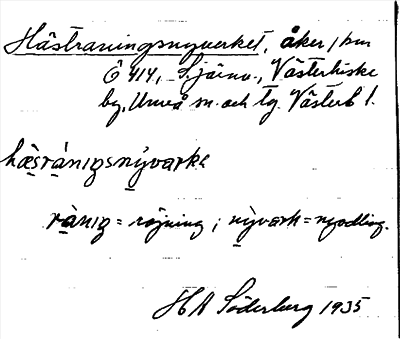 Hästraningsnyverket, åker, hm
Ö 414, S. järnv., Västerhiske
by, Umeå sn. och tg. Västerb l.
hæsrànigsnývarka
rànig = röjning; nývark = nyodling.
HA Söderberg 1935